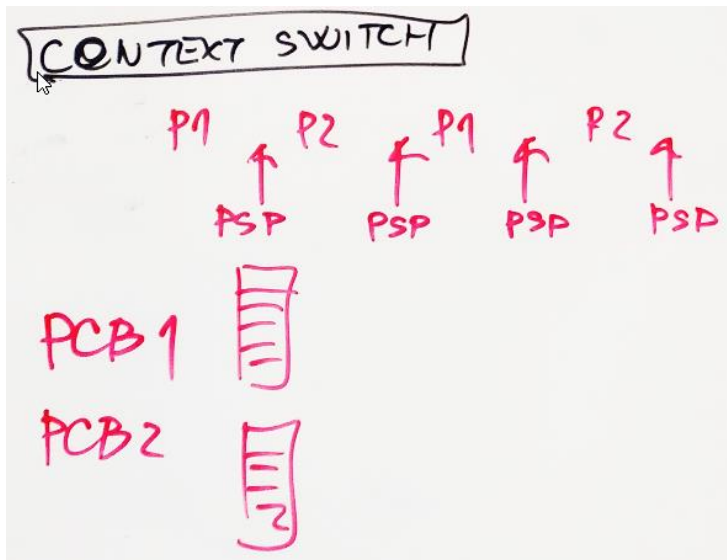 CONTEXT SWITCH
P1 P2 P1 P2
PSP PSP PSP PSP
PCB 1
PCB 2